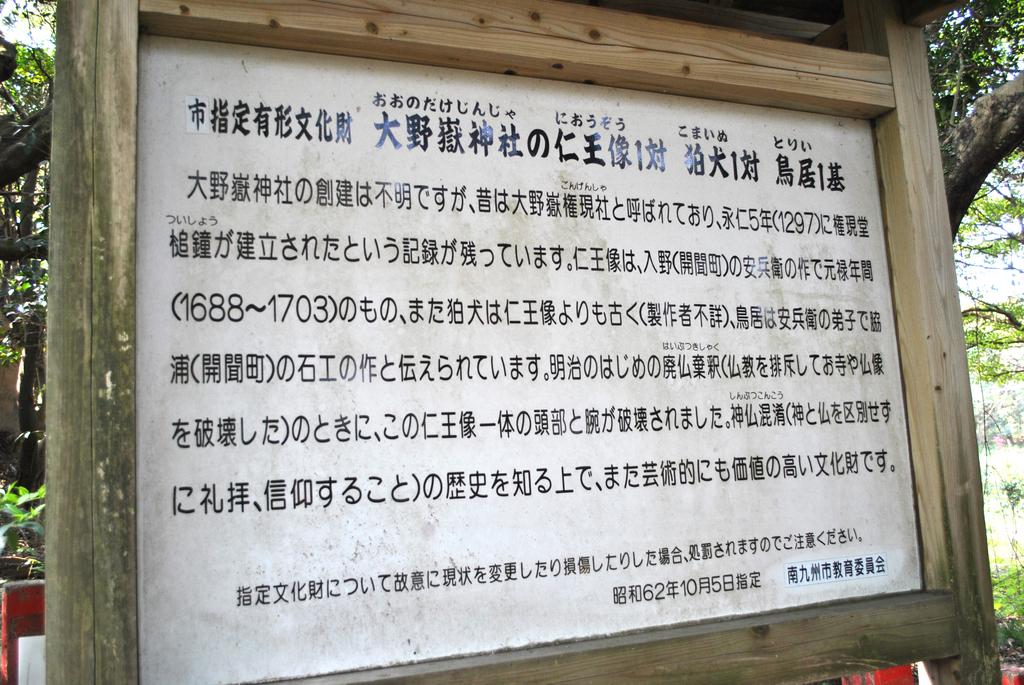 おおのだけじんじゃ におうぞう こまいぬ とりい
市指定有形文化財 大野嶽神社の仁王像1対 狛犬1対 鳥居1基
ごんげんしゃ
大野嶽神社の創建は不明ですが、昔は大野嶽権現社と呼ばれており、永仁5年(1297)に権現堂
ついしょう
槌鐘が建立されたという記録が残っています。仁王像は、入野(開聞町)の安兵衛の作で元禄年間
(1688～1703)のもの、また狛犬は仁王像よりも古く(製作者不詳)、鳥居は安兵衛の弟子で脇
浦(開聞町)の石工の作と伝えられています。明治のはじめの廃仏棄釈(仏教を排斥してお寺や仏像
はいぶつきしゃく
を破壊した)のときに、この仁王像一体の頭部と腕が破壊されました。神仏混淆(神と仏を区別せず
しんぶつこんこう
に礼拝、信仰すること)の歴史を知る上で、また芸術的にも価値の高い文化財です。
指定文化財について故意に現状を変更したり損傷したりした場合、処罰されますのでご注意ください。
昭和62年10月5日指定 南九州市教育委員会